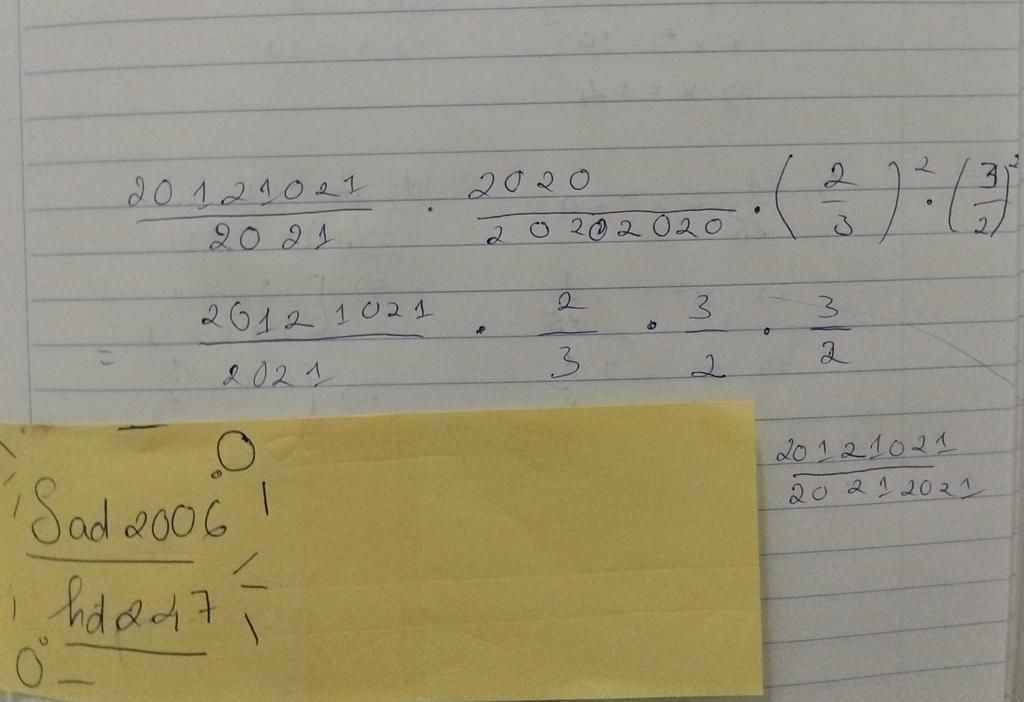 20121021/2021 · 2020/20202020 · (2/3)² · (3/2)²
= 20121021/2021 · 2/3 · 3/2 · 3/2
20121021/20212021
Sad2006
hd247